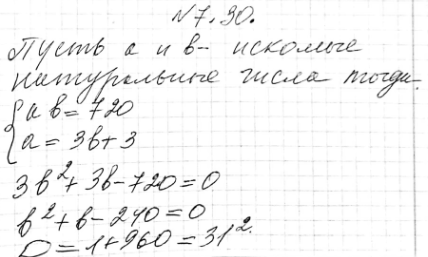 №7.30.
Пусть a и b- искомые
натуральные числа тогда.
{ab=720
{a=3b+3
3b²+3b-720=0
b²+b-240=0
D=1+960=31².